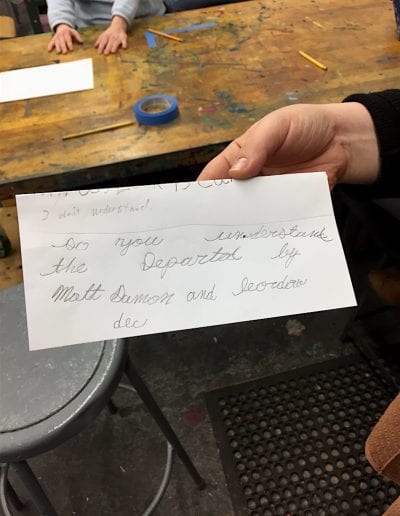 I don't understand
Do you understand
the Departed by
Matt Damon and leordow
dec